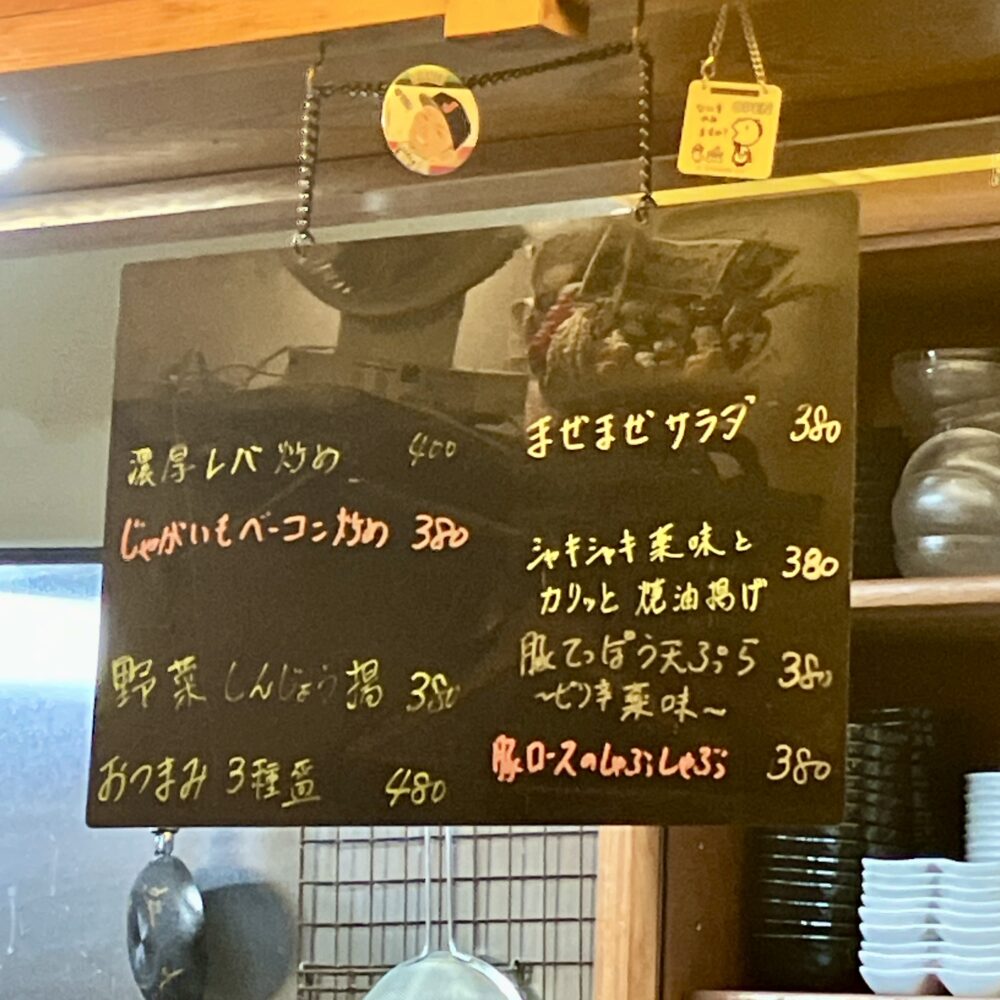 濃厚レバ炒め 400
じゃがいもベーコン炒め 380
野菜しんじょう揚 380
おつまみ3種盛 480
まぜまぜサラダ 380
シャキシャキ薬味と
カリッと焼油揚げ 380
豚てっぽう天ぷら 380
〜ピリ辛薬味〜
豚ロースのしゃぶしゃぶ 380
OPEN